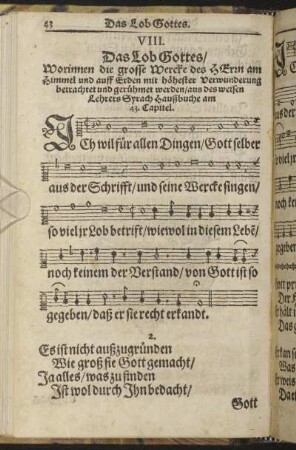 43 Das Lob Gottes.
VIII.
Das Lob Gottes/
Worinnen die grosse Wercke des HErrn am
Himmel und auff Erden mit höhester Verwunderung
betrachtet und gerühmet werden/aus des weisen
Lehrers Syrach Haußbuche am
43. Capitel.
ICh wil für allen Dingen/Gott selber
aus der Schrifft/und seine Wercke singen/
so viel jr Lob betrift/wiewol in diesem Lebẽ/
noch keinem der Verstand/von Gott ist so
gegeben/daß er sie recht erkandt.
2.
Es ist nicht außzugründen
Wie groß sie Gott gemacht/
Ja alles/was zu finden
Ist wol durch Ihn bedacht/
Gott